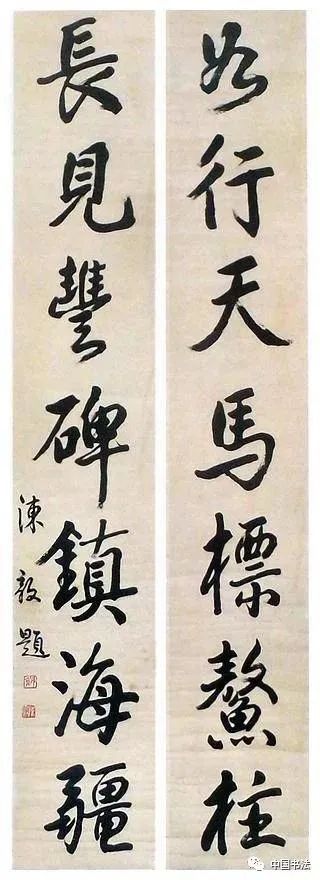 如行天馬標鰲柱
長見豐碑鎮海疆
陳毅題
中国书法